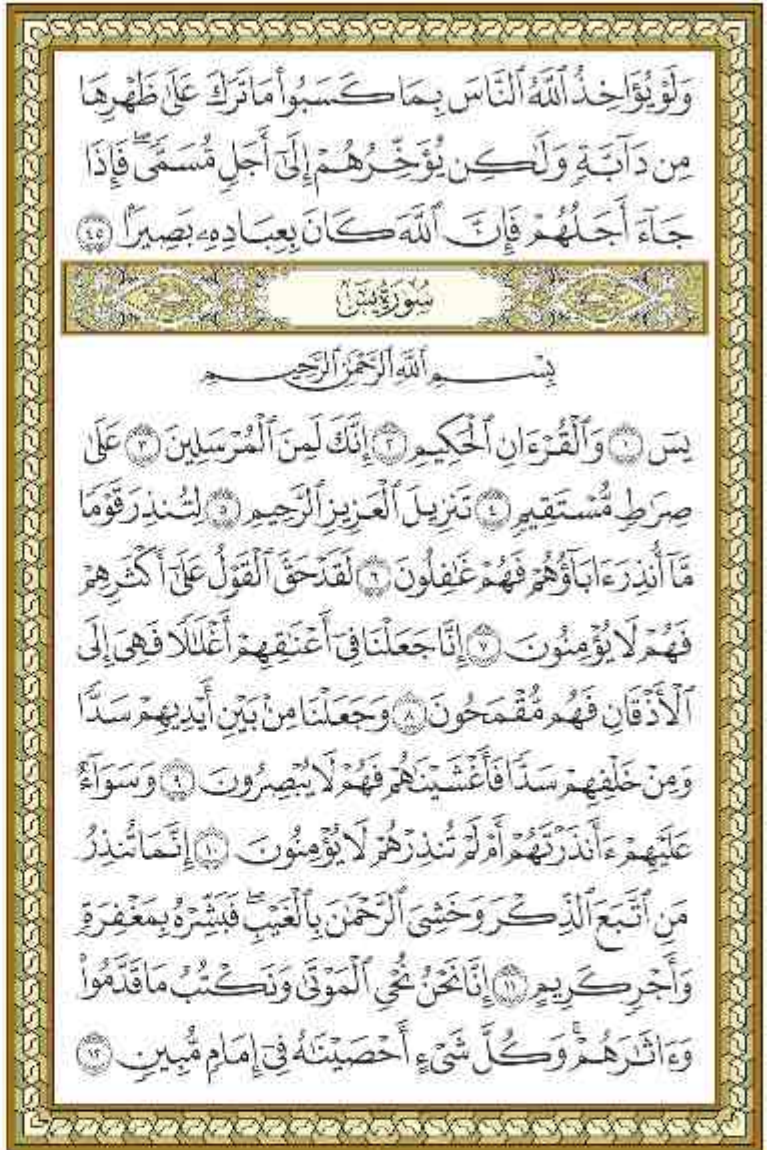 وَلَوْ يُؤَاخِذُ ٱللَّهُ ٱلنَّاسَ بِمَا كَسَبُوا۟ مَا تَرَكَ عَلَىٰ ظَهْرِهَا
مِن دَآبَّةٍ وَلَـٰكِن يُؤَخِّرُهُمْ إِلَىٰٓ أَجَلٍ مُّسَمًّى ۖ فَإِذَا
جَآءَ أَجَلُهُمْ فَإِنَّ ٱللَّهَ كَانَ بِعِبَادِهِۦ بَصِيرًۢا ٤٥
سُورَةُ يسٓ
بِسْمِ ٱللَّهِ ٱلرَّحْمَـٰنِ ٱلرَّحِيمِ
يسٓ ١ وَٱلْقُرْءَانِ ٱلْحَكِيمِ ٢ إِنَّكَ لَمِنَ ٱلْمُرْسَلِينَ ٣ عَلَىٰ
صِرَٰطٍ مُّسْتَقِيمٍ ٤ تَنزِيلَ ٱلْعَزِيزِ ٱلرَّحِيمِ ٥ لِتُنذِرَ قَوْمًا
مَّآ أُنذِرَ ءَابَآؤُهُمْ فَهُمْ غَـٰفِلُونَ ٦ لَقَدْ حَقَّ ٱلْقَوْلُ عَلَىٰٓ أَكْثَرِهِمْ
فَهُمْ لَا يُؤْمِنُونَ ٧ إِنَّا جَعَلْنَا فِىٓ أَعْنَـٰقِهِمْ أَغْلَـٰلًا فَهِىَ إِلَى
ٱلْأَذْقَانِ فَهُم مُّقْمَحُونَ ٨ وَجَعَلْنَا مِنۢ بَيْنِ أَيْدِيهِمْ سَدًّا
وَمِنْ خَلْفِهِمْ سَدًّا فَأَغْشَيْنَـٰهُمْ فَهُمْ لَا يُبْصِرُونَ ٩ وَسَوَآءٌ
عَلَيْهِمْ ءَأَنذَرْتَهُمْ أَمْ لَمْ تُنذِرْهُمْ لَا يُؤْمِنُونَ ١٠ إِنَّمَا تُنذِرُ
مَنِ ٱتَّبَعَ ٱلذِّكْرَ وَخَشِىَ ٱلرَّحْمَـٰنَ بِٱلْغَيْبِ ۖ فَبَشِّرْهُ بِمَغْفِرَةٍ
وَأَجْرٍ كَرِيمٍ ١١ إِنَّا نَحْنُ نُحْىِ ٱلْمَوْتَىٰ وَنَكْتُبُ مَا قَدَّمُوا۟
وَءَاثَـٰرَهُمْ ۚ وَكُلَّ شَىْءٍ أَحْصَيْنَـٰهُ فِىٓ إِمَامٍ مُّبِينٍ ١٢